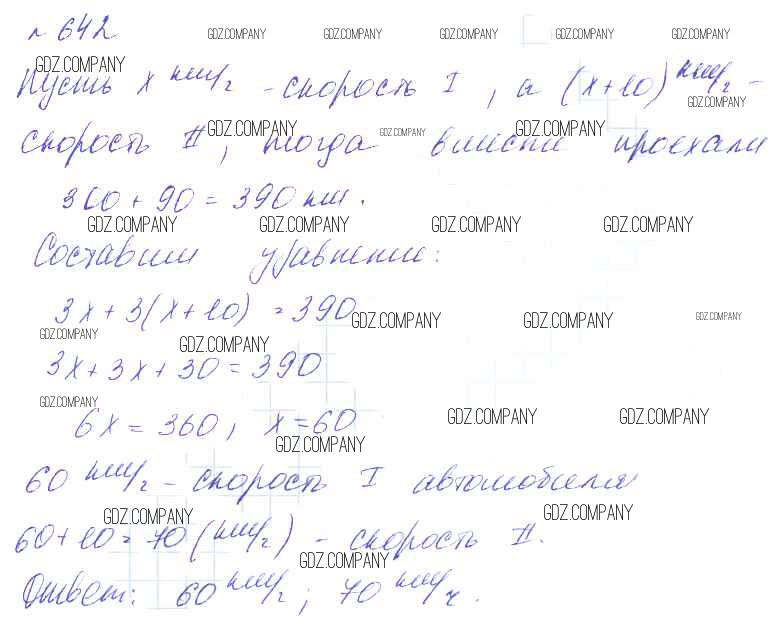 № 642 GDZ.COMPANY GDZ.COMPANY GDZ.COMPANY GDZ.COMPANY GDZ.COMPANY
GDZ.COMPANY
Пусть x км/г - скорость I, а (x+10) км/г -
GDZ.COMPANY
GDZ.COMPANY GDZ.COMPANY GDZ.COMPANY
скорость II, тогда вместе проехали
300 + 90 = 390 км.
GDZ.COMPANY GDZ.COMPANY GDZ.COMPANY GDZ.COMPANY
Составим уравнение:
3x + 3(x+10) = 390
GDZ.COMPANY GDZ.COMPANY GDZ.COMPANY
GDZ.COMPANY GDZ.COMPANY
3x + 3x + 30 = 390
GDZ.COMPANY
6x = 360, x = 60
GDZ.COMPANY GDZ.COMPANY GDZ.COMPANY
60 км/г - скорость I автомобиля
GDZ.COMPANY GDZ.COMPANY
60 + 10 = 70 (км/г) - скорость II.
GDZ.COMPANY
Ответ: 60 км/г; 70 км/ч.